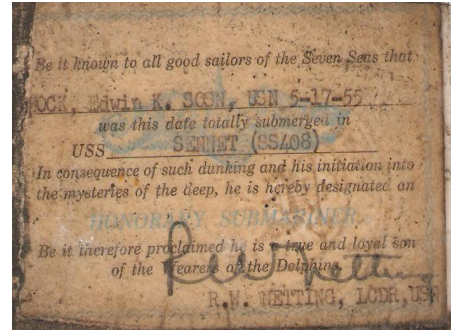 Be it known to all good sailors of the Seven Seas that
OCK, Edwin K. SOSN, USN 5-17-55
was this date totally submerged in
USS SENNET (SS408)
In consequence of such dunking and his initiation into
the mysteries of the deep, he is hereby designated an
HONORARY SUBMARINER
Be it therefore proclaimed he is a true and loyal son
of the Wearers of the Dolphins.
R.W. Netting
R.W. NETTING, LCDR, USN